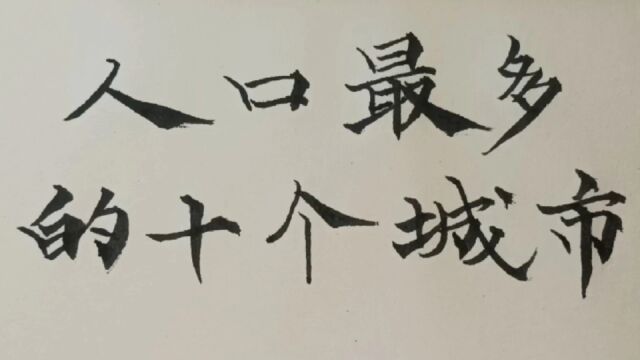 人口最多
的十个城市